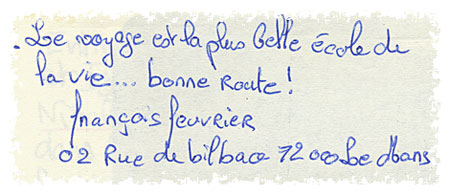 . Le voyage est la plus belle école de
la vie... bonne Route !
françois feuvrier
02 Rue de bilbao 72000 Le Mans